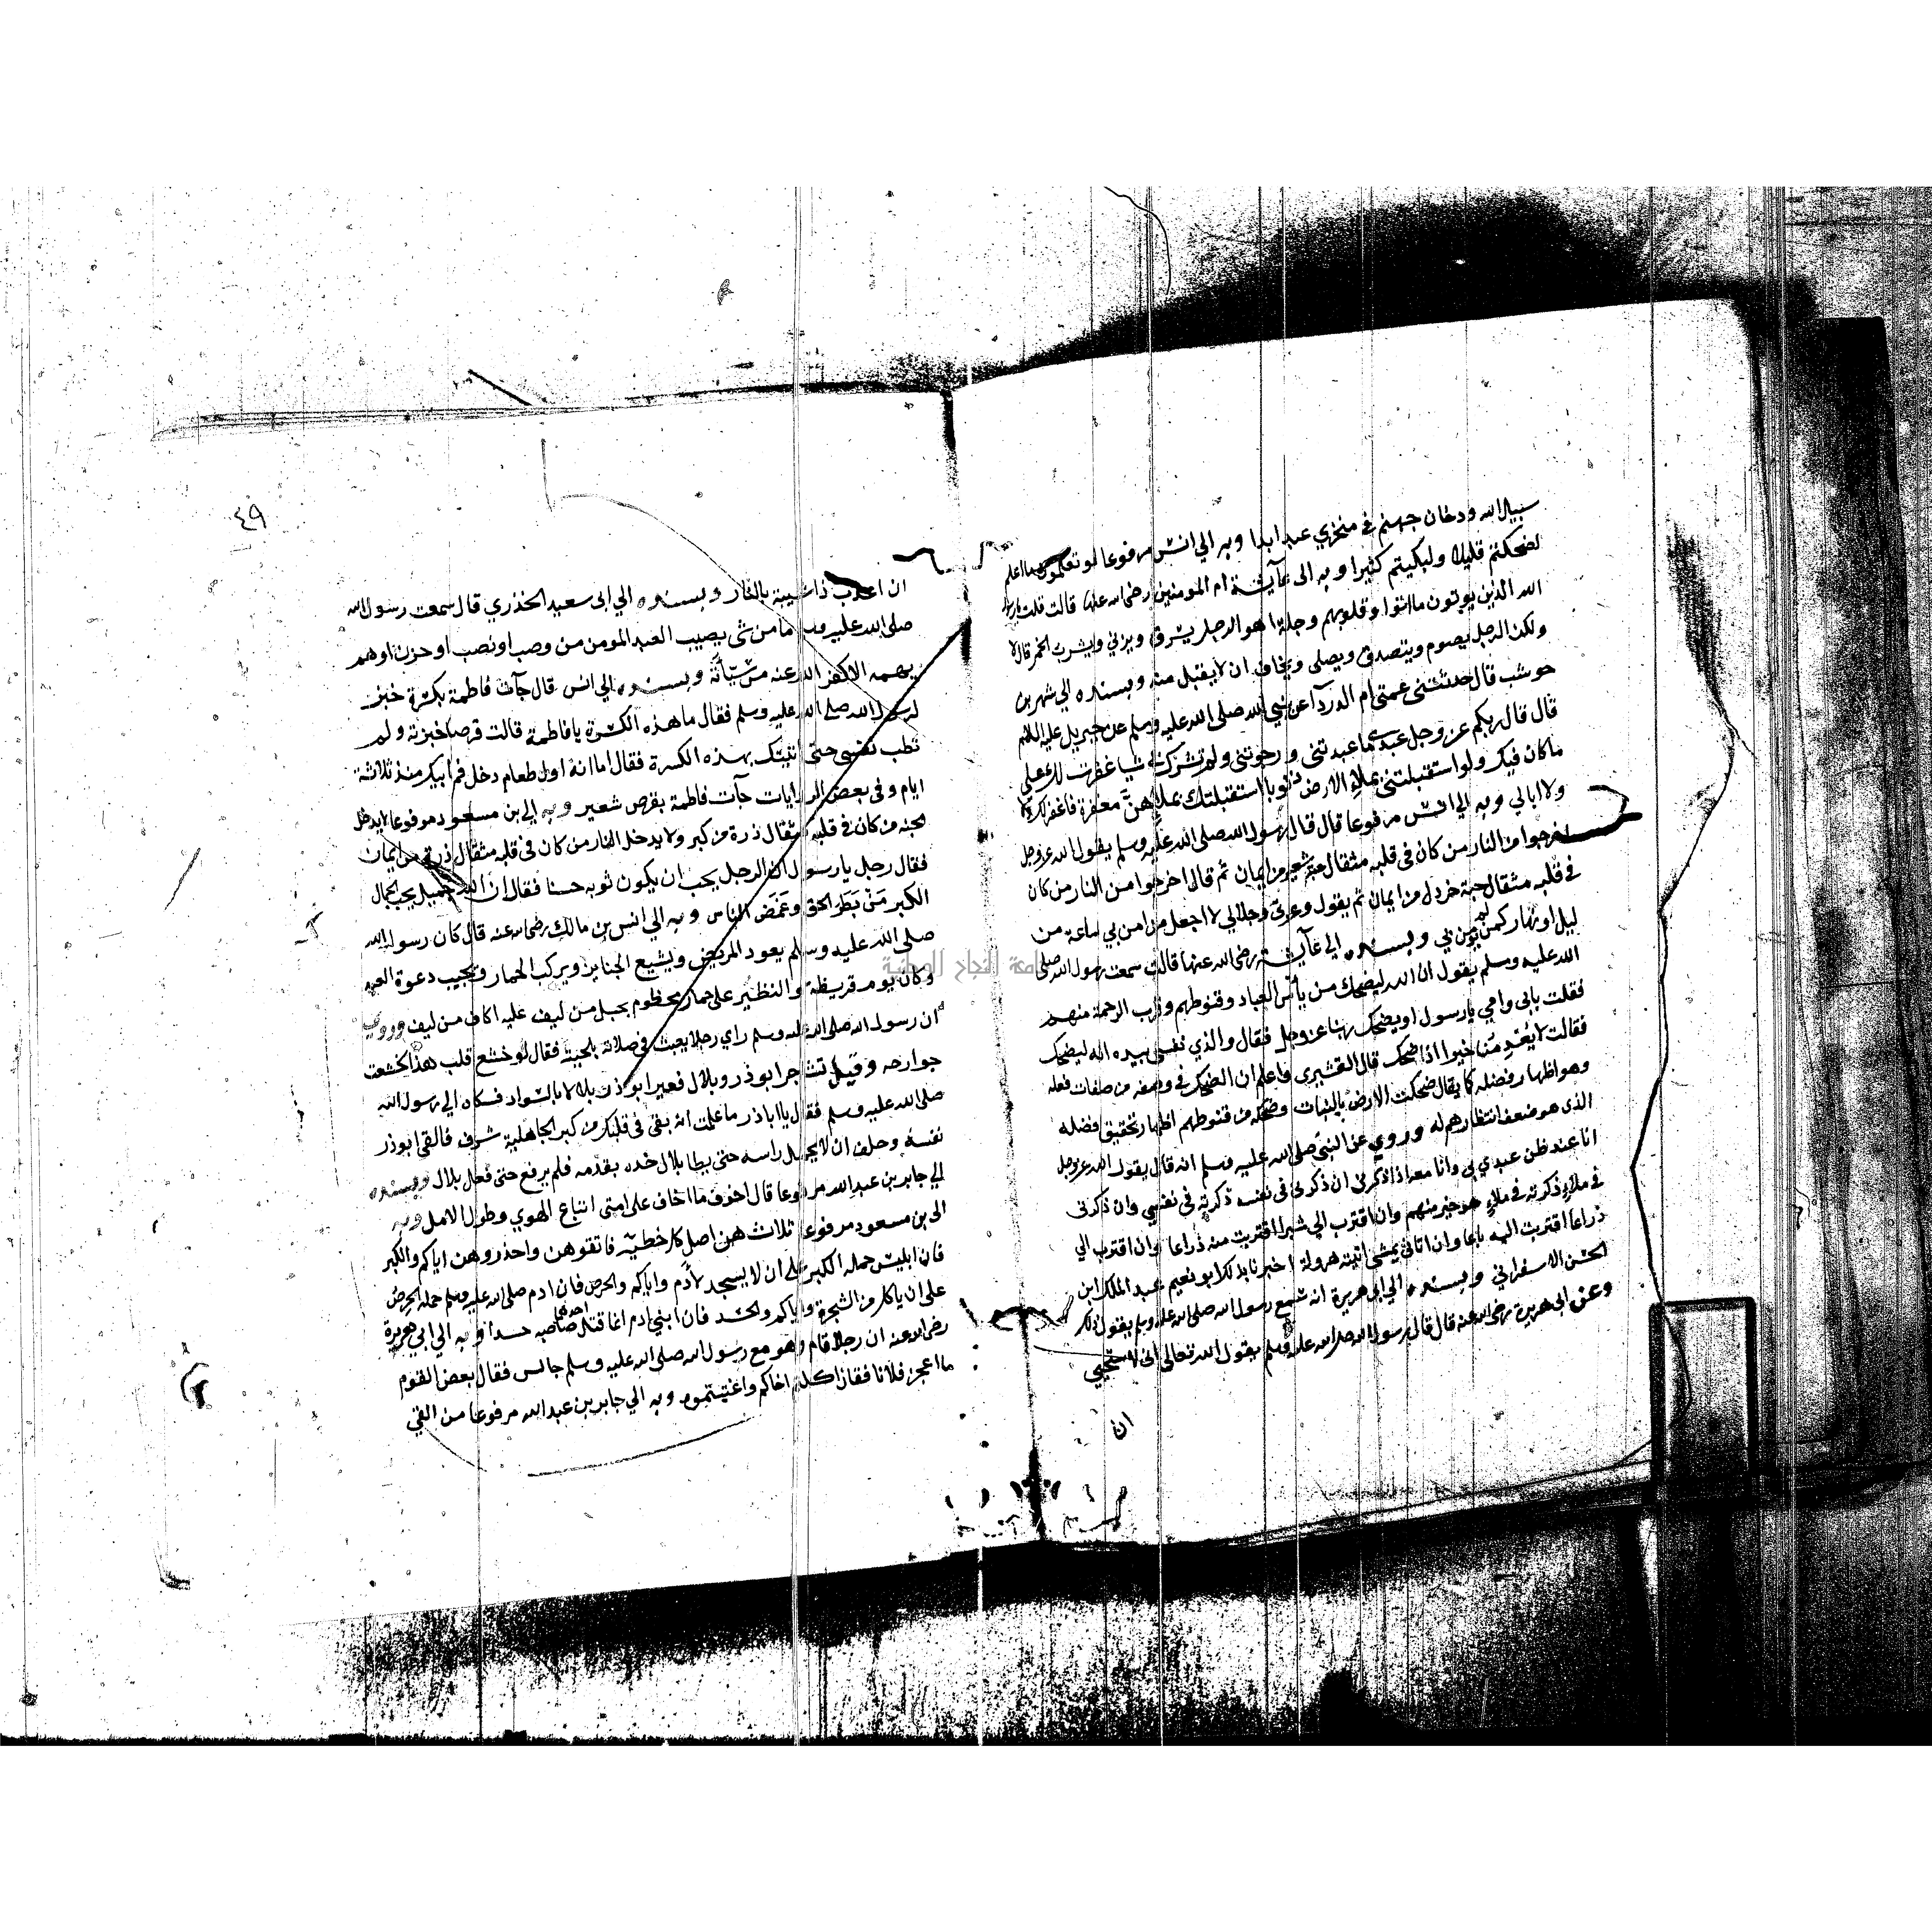 سبيل الله ودخان جهنم في منخري عبد ابدا وبه الي انس مرفوعا لو تعلمون ما اعلم
لضحكتم قليلا ولبكيتم كثيرا وبه الى عآيشة ام المومنين رضي الله عنها قالت قلت يا رسول
الله الذين يوتون ما اتوا وقلوبهم وجلة اهو الرجل يسرق ويزني ويشرب الخمر قال لا
ولكن الرجل يصوم ويتصدق ويصلى ويخاف ان لا يقبل منه وبسنده الي شهر بن
حوشب قال حدثتني عمتي ام الدردآ عن نبي الله صلى الله عليه وسلم عن جبريل عليه السلام
قال قال ربكم عز وجل عبدي ما عبدتني ورجوتني ولم تشرك بي شيا غفرت لك على
ما كان فيك ولو استقبلتني بملإ الارض ذنوبا استقبلتك بملإهن مغفرة فاغفر لك
ولا ابالي وبه الي انس مرفوعا قال قال رسول الله صلى الله عليه وسلم يقول الله عز وجل
اخرجوا من النار من كان في قلبه مثقال شعير من ايمان ثم قال اخرجوا من النار من كان
في قلبه مثقال حبة خردل من ايمان ثم يقول وعزتي وجلالي لا اجعل من امن بي ساعة من
ليل او نهار كمن لم يومن بي وبسنده الي عآيشة رضي الله عنها قالت سمعت رسول الله صلى
الله عليه وسلم يقول ان الله ليضحك من يأس العباد وقنوطهم وقرب الرحمة منهم
فقلت بابي وامي يا رسول او يضحك ربنا عز وجل فقال والذي نفسي بيده انه ليضحك
فقالت لا يعدمنا خيرا اذا ضحك قال القشيري واعلم ان الضحك في وصفه من صفات فعله
وهو اظهار فضله كما يقال ضحكت الارض بالنبات وضحكه من قنوطهم اظهار تحقيق فضله
الذي هو ضعف انتظارهم له وروي عن النبي صلى الله عليه وسلم انه قال يقول الله عز وجل
انا عند ظن عبدي بي وانا معه اذا ذكرني ان ذكرني في نفسه ذكرته في نفسي وان ذكرني
في ملاءٍ ذكرته في ملاءٍ هو خير منهم وان اقترب الي شبرا اقتربت منه ذراعا وان اقترب الي
ذراعا اقتربت اليه باعا وان اتاني يمشي اتيته هرولة اخبرنا بذلك ابو نعيم عبد الملك ابن
الحسن الاسفراني وبسنده الي ابي هريرة انه سمع رسول الله صلى الله عليه وسلم يقول ذلك
وعن ابي هريرة رضي الله عنه قال قال رسول الله صلى الله عليه وسلم يقول الله تعالى اني لاستحيي
ان
٤٩
ان اعذب ذا شيبة بالنار وبسنده الي ابي سعيد الخذري قال سمعت رسول الله
صلى الله عليه وسلم ما من شي يصيب العبد المومن من وصب او نصب او حزن او هم
يهمه الا كفر الله عنه من سيآته وبسنده الي انس قال جآت فاطمة بكسرة خبز
لرسول الله صلى الله عليه وسلم فقال ما هذه الكسرة يا فاطمة قالت قرصا خبزته ولم
تطب نفسي حتى اتيتك بهذه الكسرة فقال اما انه اول طعام دخل فم ابيك منذ ثلاثة
ايام وفي بعض الروايات جآت فاطمة بقرص شعير وبه الي بن مسعود مرفوعا لا يدخل
الجنة من كان في قلبه مثقال ذرة من كبر ولا يدخل النار من كان في قلبه مثقال ذرة من ايمان
فقال رجل يا رسول ان الرجل يحب ان يكون ثوبه حسنا فقال ان الله جميل يحب الجمال
الكبر من بطر الحق وغمض الناس وبه الي انس بن مالك رضي الله عنه قال كان رسول الله
صلى الله عليه وسلم يعود المريض ويشيع الجنايز ويركب الحمار ويجيب دعوة العبد
وكان يوم قريظة والنظير على حمار مخطوم بحبل من ليف عليه اكاف من ليف وروي
ان رسول الله صلى الله عليه وسلم راي رجلا يعبث في صلاته بلحيته فقال لو خشع قلب هذا لخشعت
جوارحه وقيل تشاجر ابو ذر وبلال فعير ابو ذر بلالا بالسواد فشكاه الي رسول الله
صلى الله عليه وسلم فقال يا اباذر ما علمت انه بقى في قلبك من كبر الجاهلية شرف فالقى ابو ذر
نفسه وحلف ان لا يحمل راسه حتى يطا بلال خده بقدمه فلم يرفع حتى فعل بلال وبسنده
الي جابر بن عبد الله مرفوعا قال اخوف ما اخاف على امتي اتباع الهوي وطول الامل وبه
الى بن مسعود مرفوعا ثلاث هن اصل كل خطية فاتقوهن واحذروهن اياكم والكبر
فان ابليس حمله الكبر على ان لا يسجد لأدم واياكم والحرص فان ادم صلى الله عليه وسلم حمله الحرص
على ان ياكل من الشجرة واياكم والحسد فان ابني ادم انما قتل احدهما صاحبه حسدا وبه الي ابي هريرة
رضي الله عنه ان رجلا قام وهو مع رسول الله صلى الله عليه وسلم جالس فقال بعض القوم
ما اعجز فلانا فقال اكلتم اخاكم واغتبتموه وبه الي جابر بن عبد الله مرفوعا من القي
جامعة النجاح الوطنية